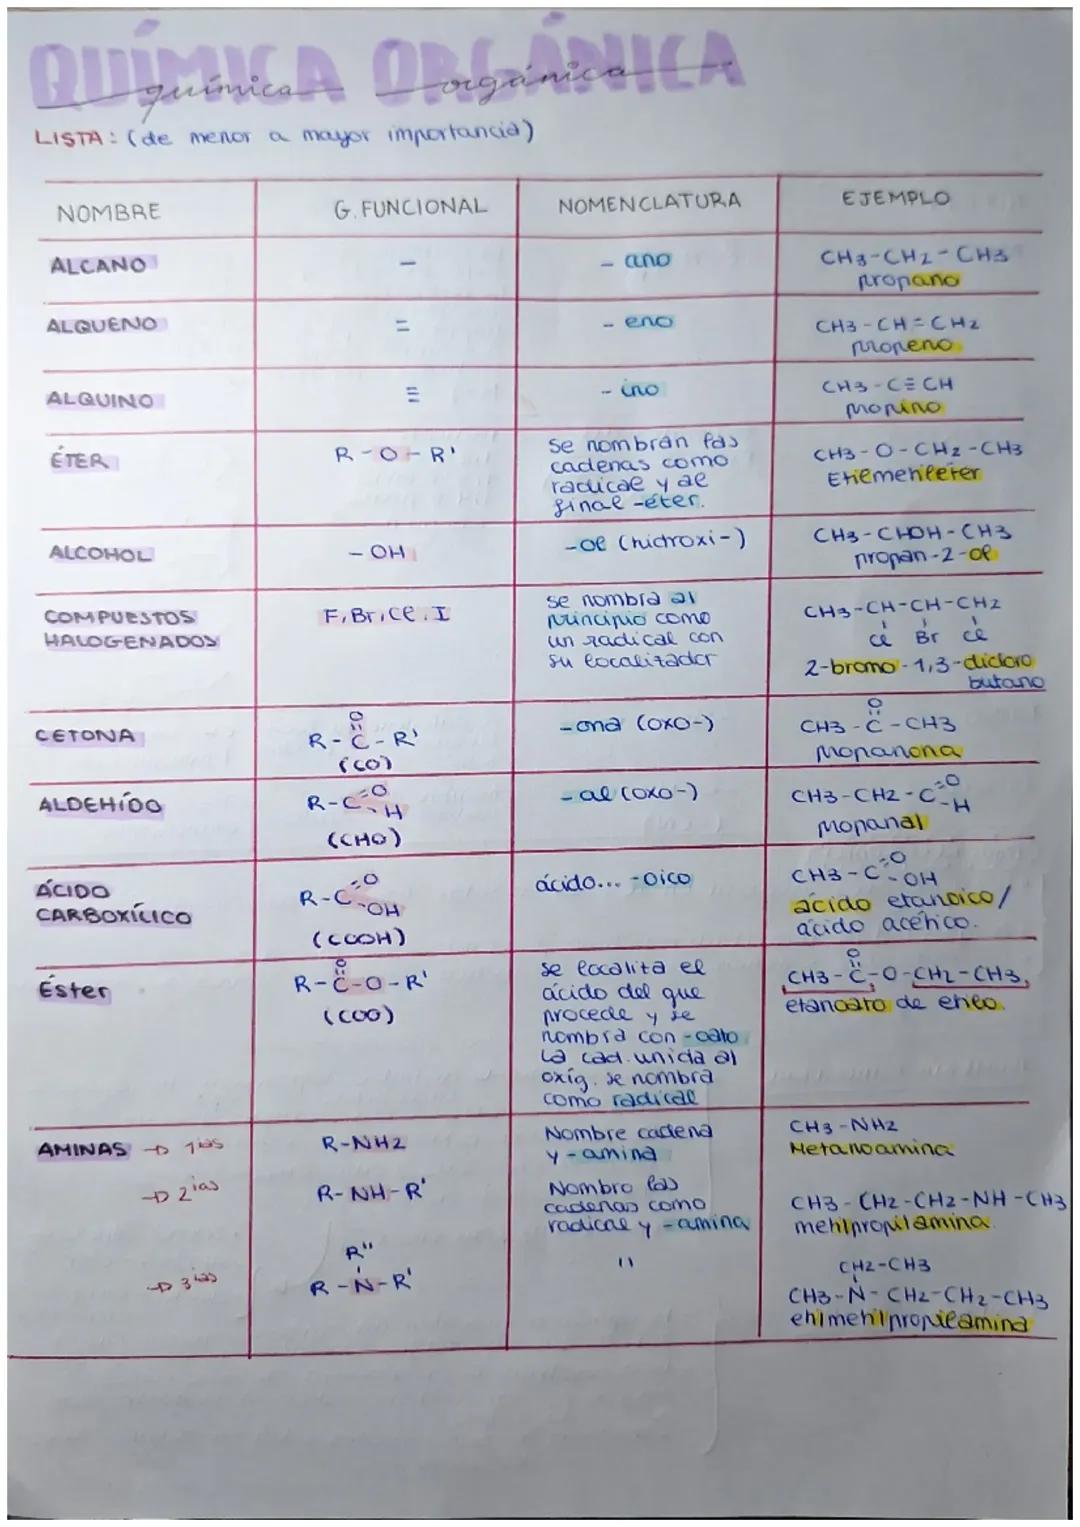 QUÍMICA ORGÁNICA
química orgánica
LISTA: (de menor a mayor importancia)
NOMBRE G. FUNCIONAL NOMENCLATURA EJEMPLO
ALCANO – - ano CH3-CH2-CH3
propano
ALQUENO = - eno CH3-CH=CH2
propeno
ALQUINO ≡ - ino CH3-C≡CH
propino
ÉTER R-O-R' Se nombran las
cadenas como
radical y al
final -éter.
CH3-O-CH2-CH3
Etilmetileter
ALCOHOL -OH -ol (hidroxi-) CH3-CHOH-CH3
propan-2-ol
COMPUESTOS
HALOGENADOS
F, Br, Cl, I
se nombra al
principio como
un radical con
su localizador
CH3-CH-CH-CH2
Cl Br Cl
2-bromo-1,3-dicloro
butano
CETONA
O
R-C-R'
(CO)
-ona (oxo-)
O
CH3-C-CH3
propanona
ALDEHÍDO
R-C=O
H
(CHO)
-al (oxo-)
CH3-CH2-C=O
-H
propanal
ÁCIDO
CARBOXÍLICO
R-C=O
-OH
(COOH)
ácido... -oico
CH3-C=O
-OH
ácido etanoico/
ácido acético.
Éster
O
R-C-O-R'
(COO)
se localita el
ácido del que
procede y se
nombra con -oato
La cad. unida al
oxíg. se nombra
como radical
O
CH3-C-O-CH2-CH3,
etanoato de etilo.
AMINAS → 1ias R-NH2 Nombre cadena
y -amina
CH3-NH2
Metanoamina
→ 2ias R-NH-R' Nombro las
cadenas como
radical y -amina
CH3-CH2-CH2-NH-CH3
metilpropilamina.
→ 3ias
R"
R-N-R'
"
CH2-CH3
CH3-N-CH2-CH2-CH3
etilmetilpropilamina